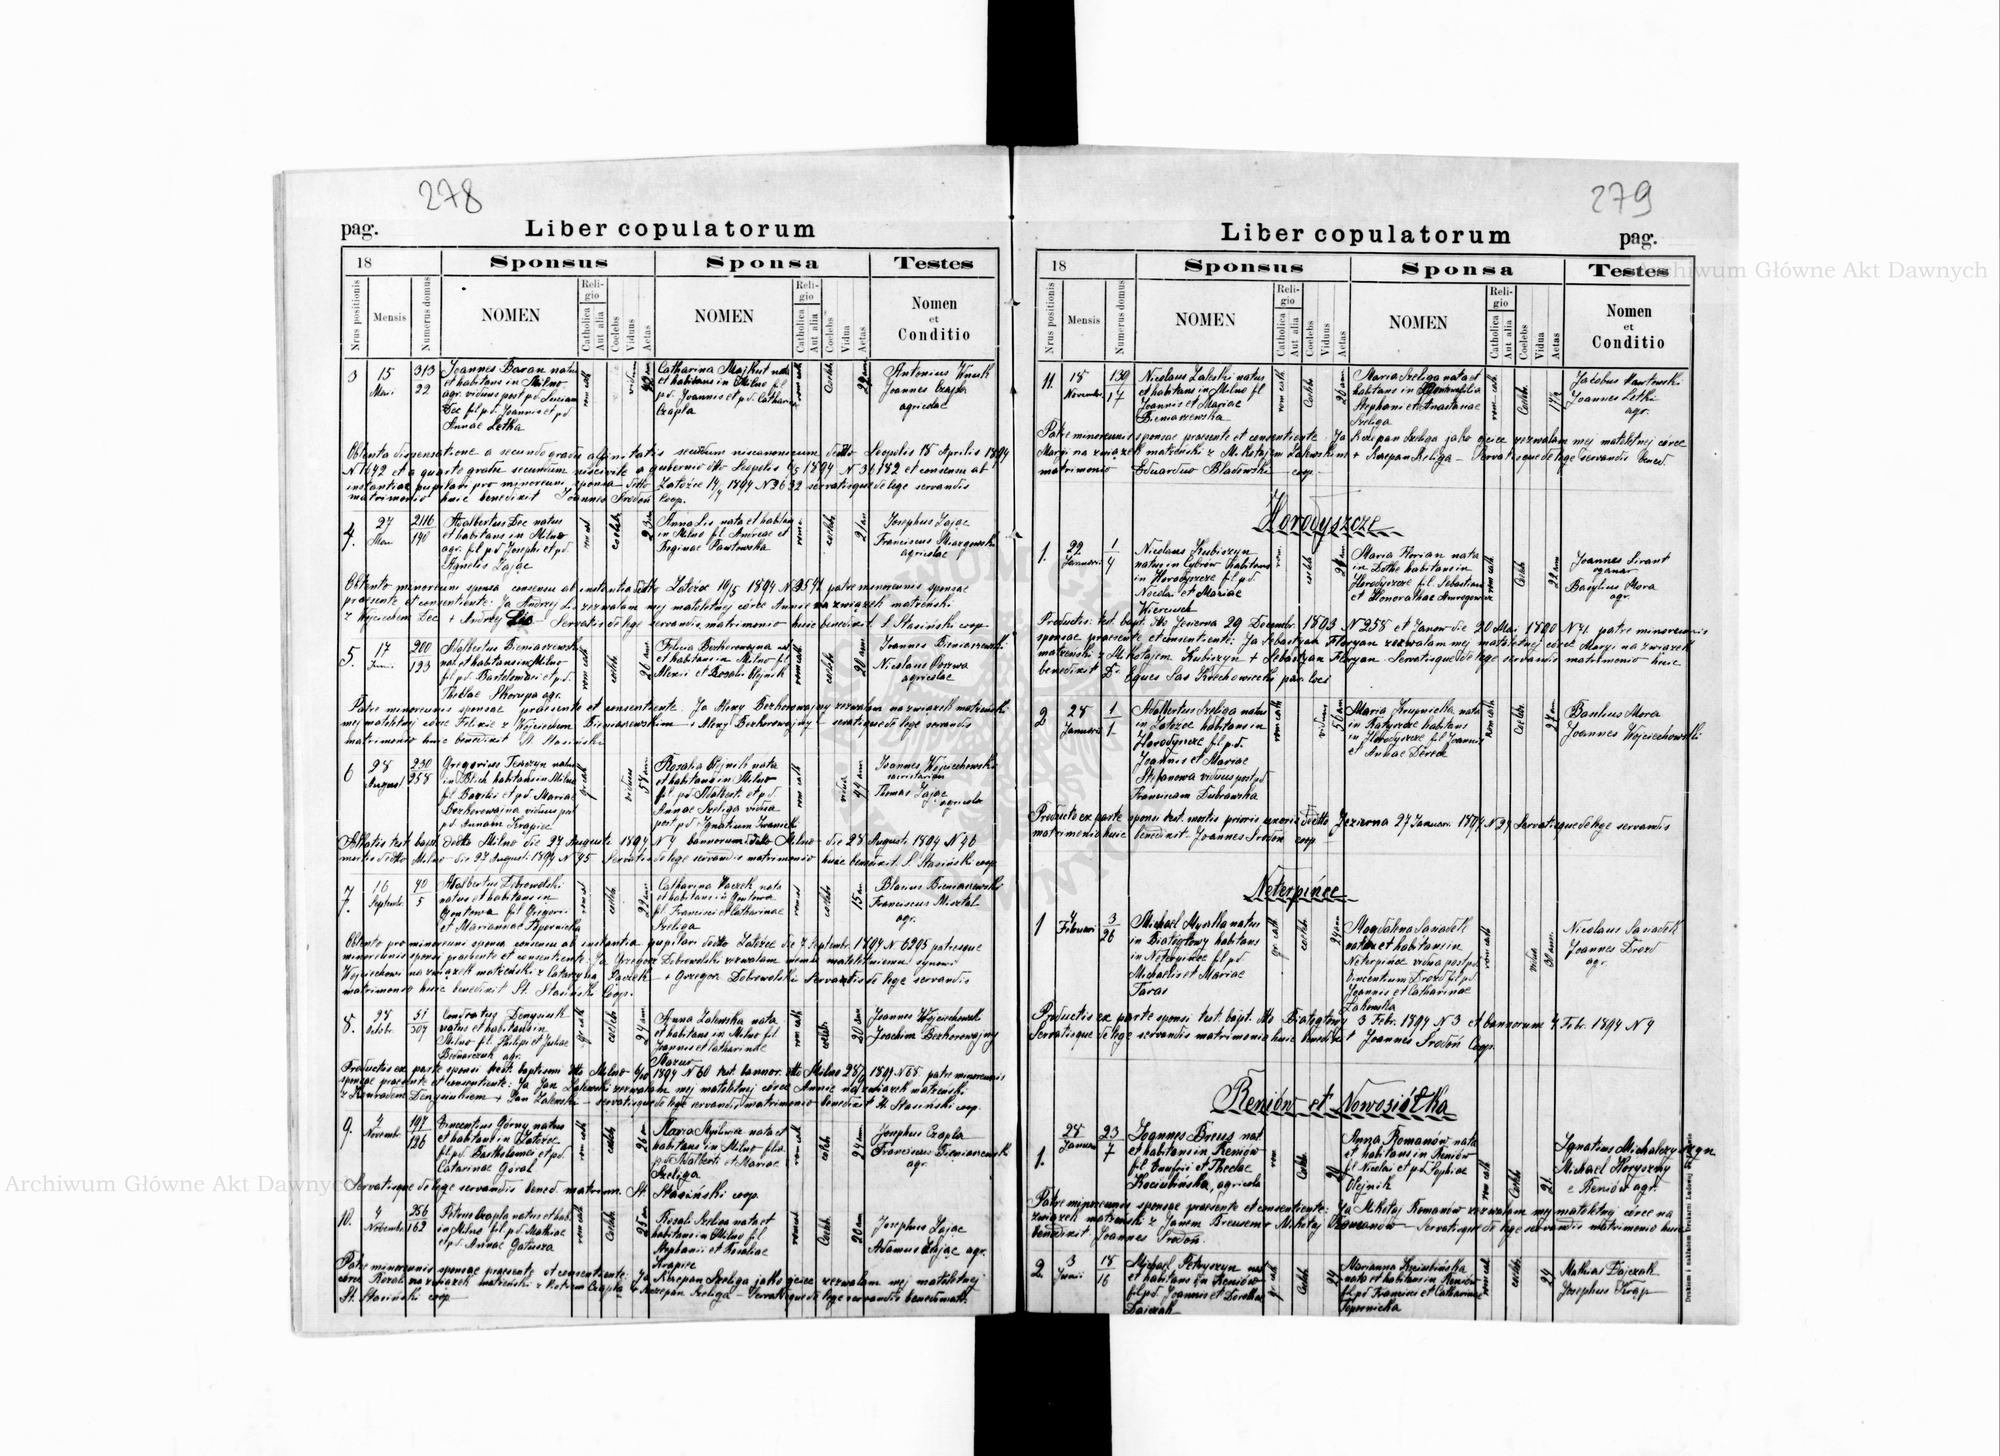 278
pag.
Liber copulatorum
18
Sponsus
Sponsa
Testes
Nrus positionis
Mensis
Numerus domus
NOMEN
Religio
Catholica
Aut alia
Coelebs
Viduus
Aetas
NOMEN
Religio
Catholica
Aut alia
Coelebs
Vidua
Aetas
Nomen
et
Conditio
3
15
Maii
313
22
Joannes Baran natus
et habitans in Milno
agr. viduus post pd
fil pd Joannis et pd
Annae Letka
rom cath
viduus
Catharina Majkut nata
et habitans in Milno fil
pd. Joannis et pd. Catharina
Czapla
rom cath
Coelebs
Antonius Wnuk
Joannes Czapla
agricolae
Obtenta dispensatione a secundo gradu affinitatis Leopolis 18 Aprilis 1894
N 1642 et a quarto gradu a gubernio dtto Leopolis 1894 N 34182 et consensu ab
instantia pupilari pro minorenni sponsa dtto Załoźce 1894 N 3632 servatisque de lege servandis
matrimonio huic benedixit Joannes Srodoń Coop.
4.
27
Maii
190
Adalbertus Dec natus
et habitans in Milno
agr. fil pd Josephi et pd.
Agnetis Zając
coelebs
Anna Lis nata et habitans
in Milno fil Andreae et
Reginae Pawłowska
coelebs
21 an
Josephus Zając
Franciscus
agricolae
Obtento minorenni sponsa consensu ab instantia dtto Załoźce 10/5 1894 patre minorennis sponsae
praesente et consentiente: Ja Andrzej Lis zezwalam mej małoletniej córce Annie na związek małżeński
z Wojciechem Dec + Andrzej Lis Servatis de lege servandis matrimonio huic benedixit S. Stasiński coop
5.
17
Junii
200
123
Adalbertus Bieniaszewski
nat. et habitans in Milno
fil pd. Bartolomaei et pd.
Theclae Skorupa agr.
rom cath
coelebs
Felicia Bezkorowajna nat
et habitans in Milno fil
Alexii et Rosalia Olejnik
rom cath
coelebs
20 an
Joannes Bieniaszewski
Nicolaus
agricolae
Patre minorennis sponsae praesente et consentiente. Ja Alexy Bezkorowajny zezwalam na związek małżeński
mej małoletniej córce Felicie z Wojciechem Bieniaszewskim + Alexy Bezkorowajny servatisque de lege servandis
matrimonio huic benedixit St. Stasiński
6
28
August
230
258
Gregorius natus
in habitans in Milno
fil Basilii et pd Mariae
Bezkorowajna viduus post
pd Annam Krapiec
gr. cath
viduus
Rosalia Olejnik nata
et habitans in Milno
fil pd Adalbert. et pd
Annae Szeliga vidua
post pd Ignatium Iwanicki
rom cath
vidua
Joannes Wojciechowski
Thomas Zając
agricola
Allatis test. bapt. dtto Milno die 27 Augusti 1894 N 9 bannorum dtto Milno die 28 Augusti 1894 N 96
mortis dtto Milno die 27 Augusti 1894 N 95 Servatis de lege servandis matrimonio huic benedixit S. Stasiński coop
7.
16
Septembr.
40
5
Adalbertus Dobrowolski
natus et habitans in
Gontowa fil Gregorii
et Mariannae Popornicka
coelebs
Catharina Paczek nata
et habitans in Gontowa
fil Francisci et Catharinae
Szeliga
coelebs
15 an
Blasius Bieniaszewski
Franciscus Misztal
agr.
Obtento pro minorenni sponsa consensu ab instantia pupilari dtto Załoźce die 7 Septembr. 1894 N 6205 patreque
minorennis sponsi praesente et consentiente Ja Grzegorz Dobrowolski zezwalam memu małoletniemu synowi
Wojciechowi na związek małżeński z Katarzyną Paczek + Grzegorz Dobrowolski Servatis de lege servandis
matrimonio huic benedixit St. Stasiński Coop.
8.
28
Octobr.
51
507
Condratus Denysiuk
natus et habitans in
Milno fil. Philipi et Juliae
Bednarczuk agr.
gr cath
coelebs
Anna Zalewska nata
et habitans in Milno fil
Joannis et Catharinae
Mazur
rom cath
coelebs
20 an
Joannes Wojciechowski
Joachim Bezkorowajny
Productis ex parte sponsi test. baptismi dtto Milno 1894 N 60 test. bannor. dtto Milno 28/10 1894 N 68. patre minorennis
sponsae praesente et consentiente: Ja Jan Zalewski zezwalam mej małoletniej córce Annie na związek małżeński
z Kondradem Denysiukiem + Jan Zalewski servatisque de lege servandis matrimonio benedixit St. Stasiński coop.
9.
4
Novembr.
197
126
Vincentius Górny natus
et habitans in Załoźce
fil pd. Bartholomei et pd.
Catarinae Góral
rom cath
coelebs
26 an
Maria nata et
habitans in Milno filia
pd. Adalberti et Mariae
Szeliga
rom cath
coelebs
24 an
Josephus Czapla
Franciscus Bieniaszewski
agr.
Servatisque de lege servandis bened matrim. St. Stasiński coop.
10.
4
Novembr
256
162
Petrus Czapla natus et hab.
in Milno fil pd Mathiae
et pd. Annae Gałusza
rom cath
Coelebs
25 an
Rosali Szeliga nata et
habitans in Milno fil
Stephanii et Rosaliae
Krapiec
Coelebs
20 an
Josephus Zając
Adamus Zając agr.
Patre minorennis sponsae praesente et consentiente: Ja Szczepan Szeliga jako ojciec zezwalam mej małoletniej
córce Rozali na związek małżeński z Piotrem Czapla + Szczepan Szeliga - Servatisque de lege servandis bened. matr.
St. Stasiński coop
279
Liber copulatorum
pag.
18
Sponsus
Sponsa
Testes
Nrus positionis
Mensis
Numerus domus
NOMEN
Religio
Catholica
Aut alia
Coelebs
Viduus
Aetas
NOMEN
Religio
Catholica
Aut alia
Coelebs
Vidua
Aetas
Nomen
et
Conditio
11.
18
Novembr.
139
17
Nicolaus Zaleski natus
et habitans in Milno fil
Joannis et Mariae
Bieniaszewska
rom cath
Coelebs
Maria Szeliga nata et
habitans in filia
Stephani et Anastasiae
Szeliga
rom. cath
Coelebs
Jacobus Pawłowski
Joannes Letki
agr.
Patre minorennis sponsae praesente et consentiente Ja Szczepan Szeliga jako ojciec zezwalam mej małoletniej córce
Maryi na związek małżeński z Mikołajem Zalewskim + Szczepan Szeliga - Servatisque de lege servandis bened.
matrimonio Eduardus Bladowski coop.
Horodyszcze
1.
22
Januarii
1
4
Nicolaus Kubiszyn
natus in Cybrów habitans
in Horodyszcze fil pd.
Nicolai et Mariae
Wierciuch
rom.
coelebs
Maria Florian nata
in habitans in
Horodyszcze fil. Sebastiani
et Honorathae
rom cath
Coelebs
22 ann
Joannes Sirant
organar
Basylius Mora
agr.
Productis test. bapt. dtto Jezierna 29 Decembr. 1893 N 258 et Janow die 20 Mai 1890 N 41. patre minorennis
sponsae praesente et consentiente: Ja Sebastyan Floryan zezwalam mej małoletniej córce Maryi na związek
małżeński z Mikołajem Kubiszyn + Sebastyan Floryan Servatisque de lege servandis matrimonio huic
benedixit D. Eques Sas Krechowiecki par. loci
2
28
Januarii
1
1
Adalbertus Szeliga natus
in Załoźce habitans in
Horodyszcze fil pd.
Joannis et Mariae
Stefanowa viduus post pd
Franciscam Dubrawska
rom cath
viduus
Maria Krupnicka nata
in Ratyszcze habitans
in Horodyszcze fil Joannis
et Annae Dereń
rom cath
Coelebs
27 an
Basilius Mora
Joannes Wojciechowski
Producto ex parte sponsi test. mortis prioris uxoris dtto Jezierna 27 Januar. 1894 N 29 Servatisque de lege servandis
matrimonio huic benedixit Joannes Srodoń coop
Neterpińce
1
4
Februari
3
26
Michael Mysałka natus
in Białogłowy habitans
in Neterpińce fil pd
Michaelis et Mariae
Taras
gr. cath
coelebs
24 an
Magdalena Sawiadełk
nata et habitans in
Neterpińce vidua post pd.
Vincentium Drozd fil pd.
Joannis et Catharinae
Żakowska
rom cath
vidua
30 ann.
Nicolaus Sawiadełk
Joannes Drozd
agr.
Productis ex parte sponsi test. bapt. dtto Białogłowy 3 Febr. 1894 N 3 et bannorum 4 Febr. 1894 N 9
Servatisque de lege servandis matrimonio huic benedixit Joannes Srodoń Coop.
Reniów et Nowosiółka
1.
28
Januar
23
7
Joannes Breus nat.
et habitans in Reniów
fil et Theclae
Kociubińska, agricola
rom
Coelebs
Anna Romanów nata
et habitans in Reniów
fil Nicolai et pd Sophiae
Olejnik
rom cath
Coelebs
21.
Ignatius Michalczyszyn
Michael Horyczny
e Reniów agr.
Patre minorennis sponsae praesente et consentiente: Ja Mikołaj Romanów zezwalam mej małoletniej córce na
związek małżeński z Janem Breusem + Mikołaj Romanów - Servatisque de lege servandis matrimonio huic
benedixit Joannes Srodoń.
2.
3
Junii
18
16
Michael Petryszyn nat
et habitans in Reniów
fil pd. Joannis et Dorothea
Dajczak
gr. cath
Coelebs
24
Marianna Kociubińska
nata et habitans in Reniów
fil pd Francisci et Catharinae
Popornicka
rom cath
coelebs
24
Mathias Dajczak
Josephus Krąp
Archiwum Główne Akt Dawnych
Archiwum Główne Akt Dawnych